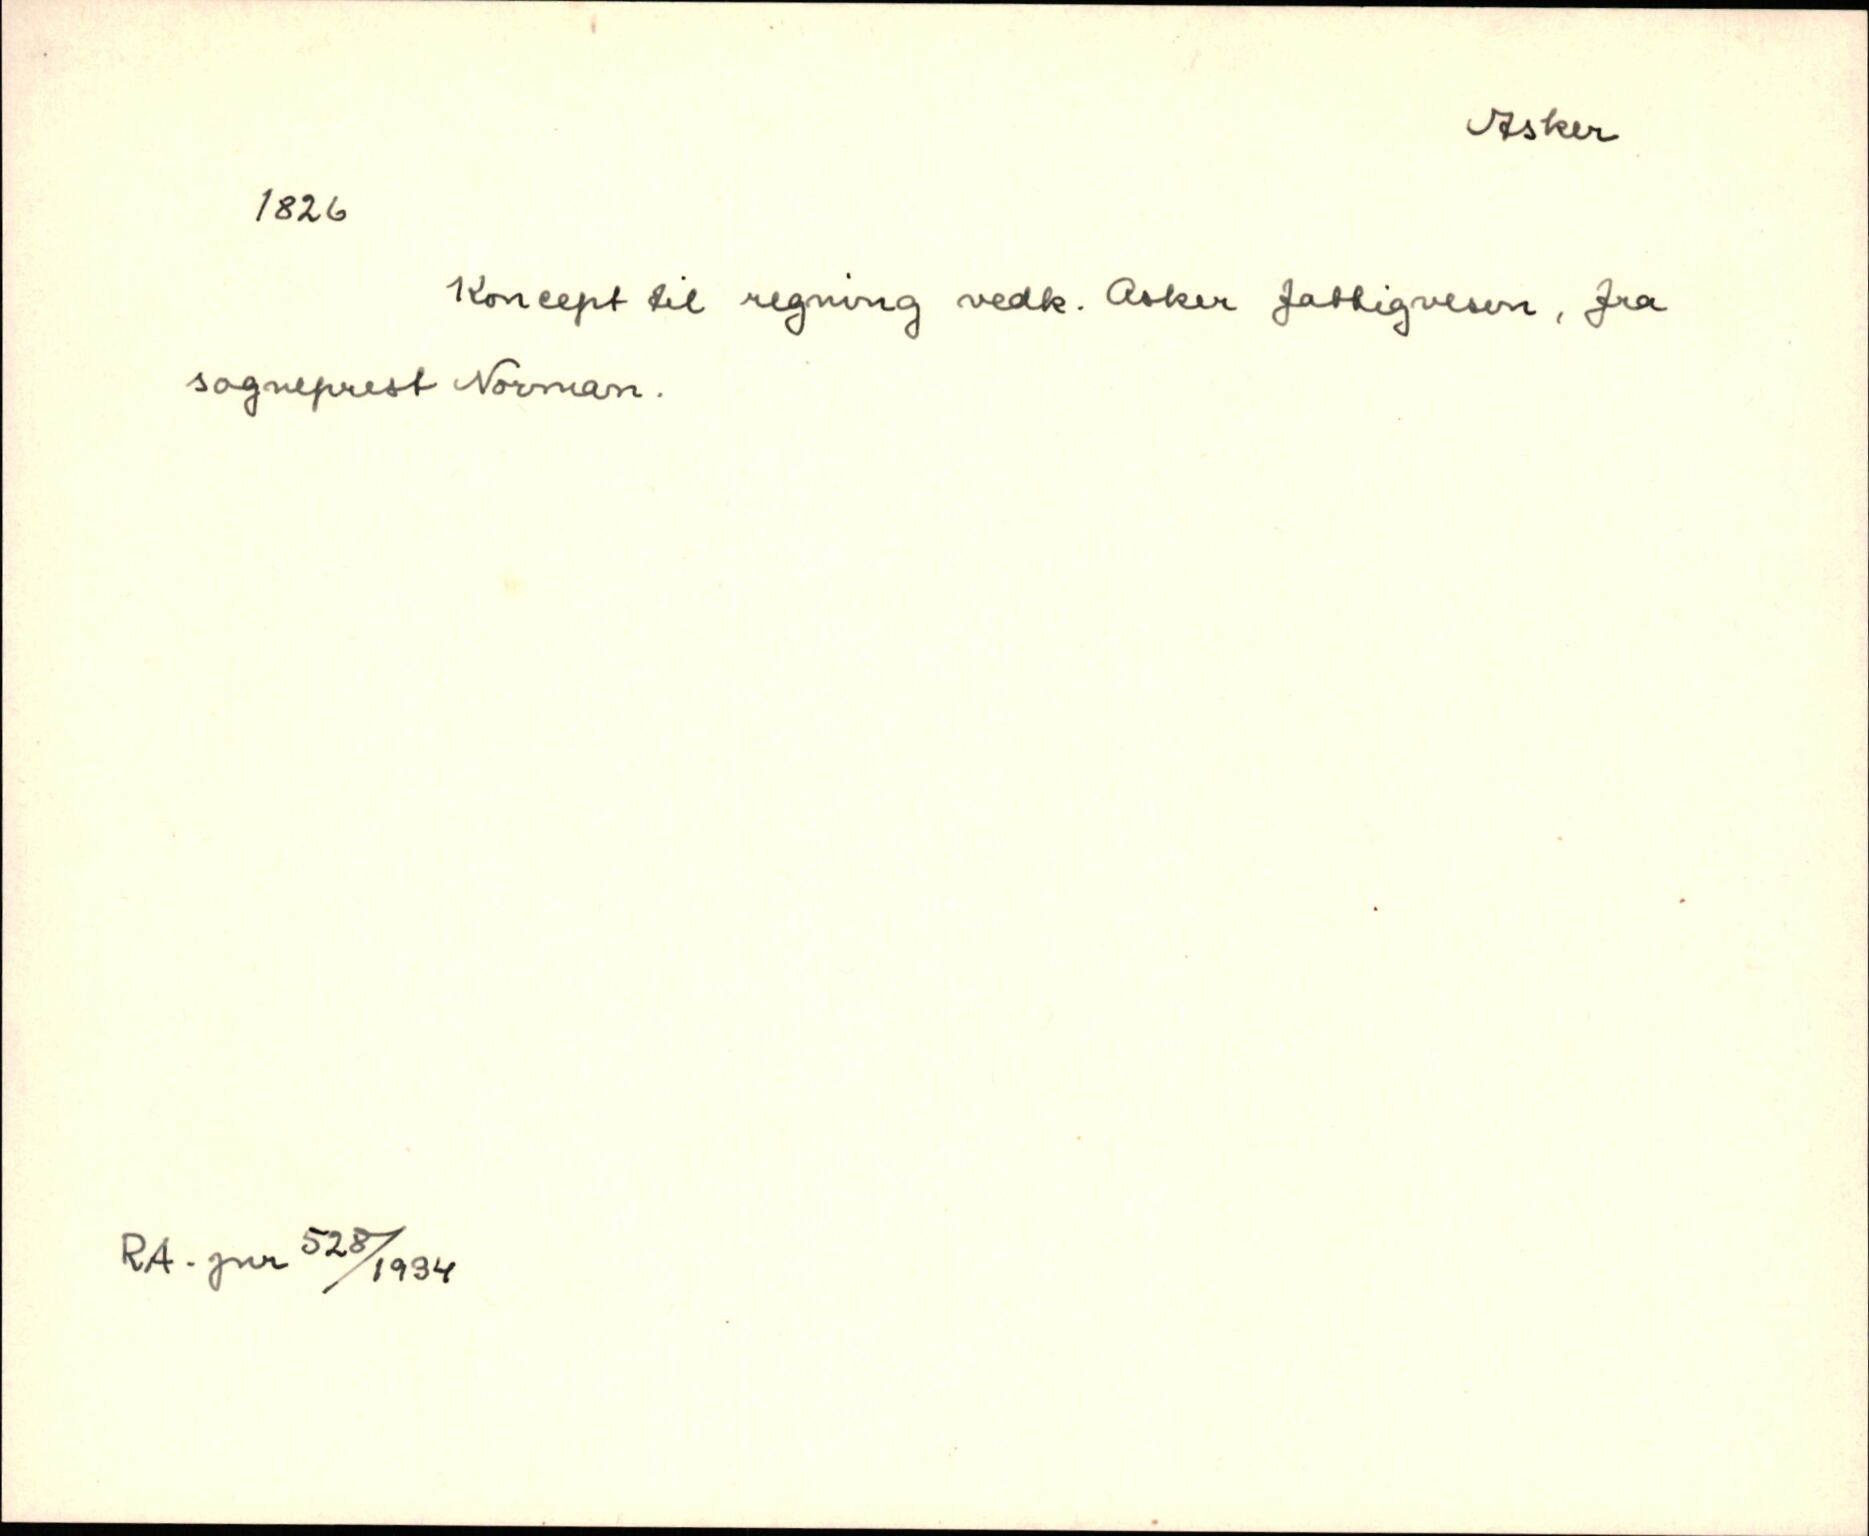 Asker
1826
Koncept til regning vedk. Asker fattigvesen, fra
sogneprest Norman.
RA. jnr 528/1934